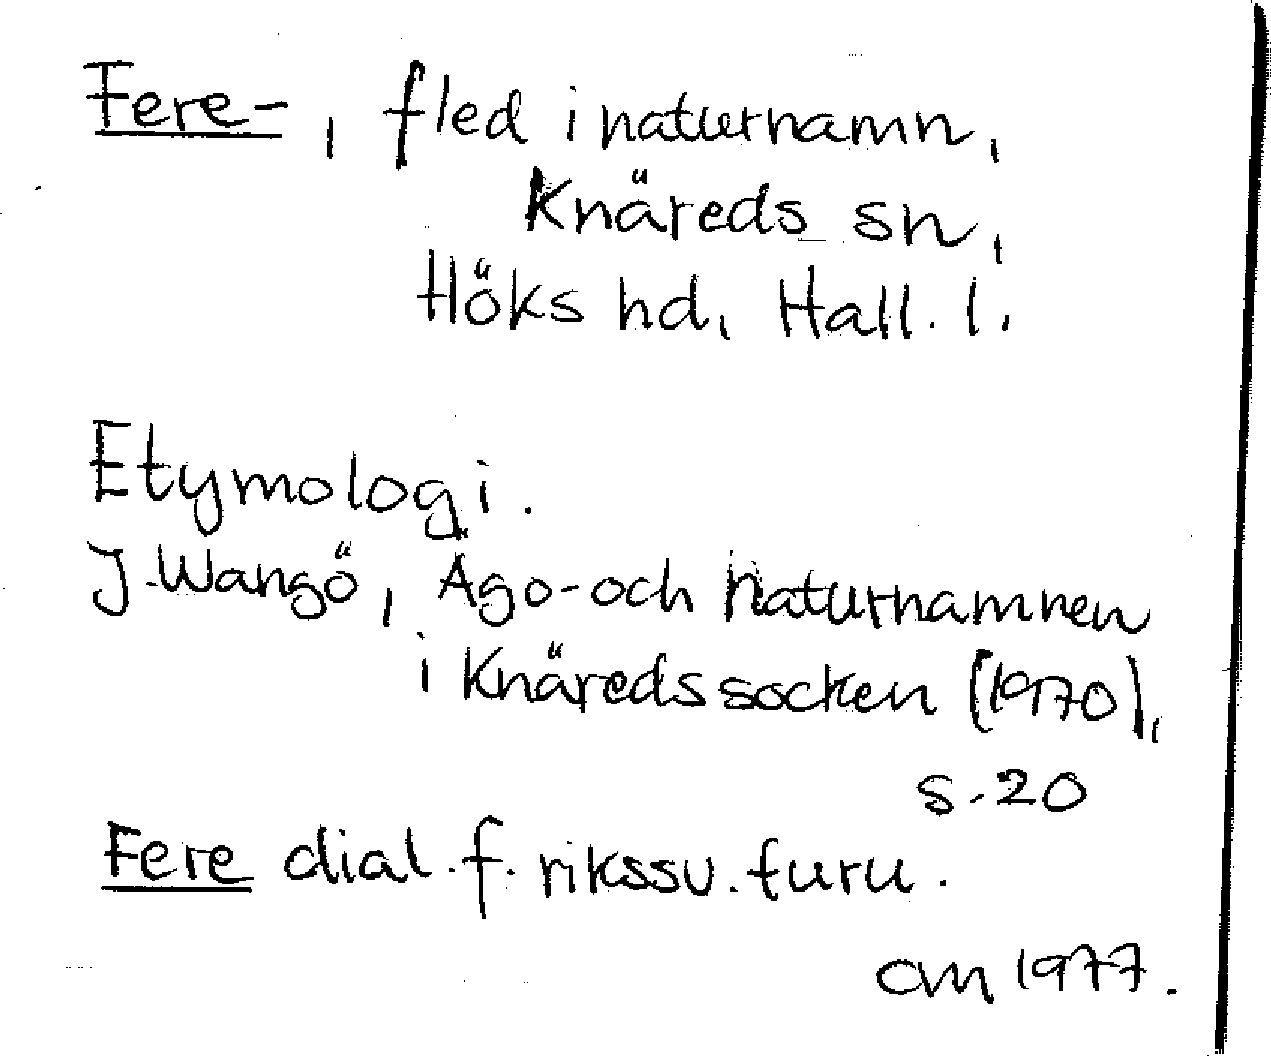 Fere-, fled i naturnamn,
Knäreds sn,
Höks hd, Hall. l.
Etymologi.
J. Wangö, Ägo- och naturnamnen
i Knäreds socken (1970),
s. 20
Fere dial. f. rikssv. furu.
CM 1977.